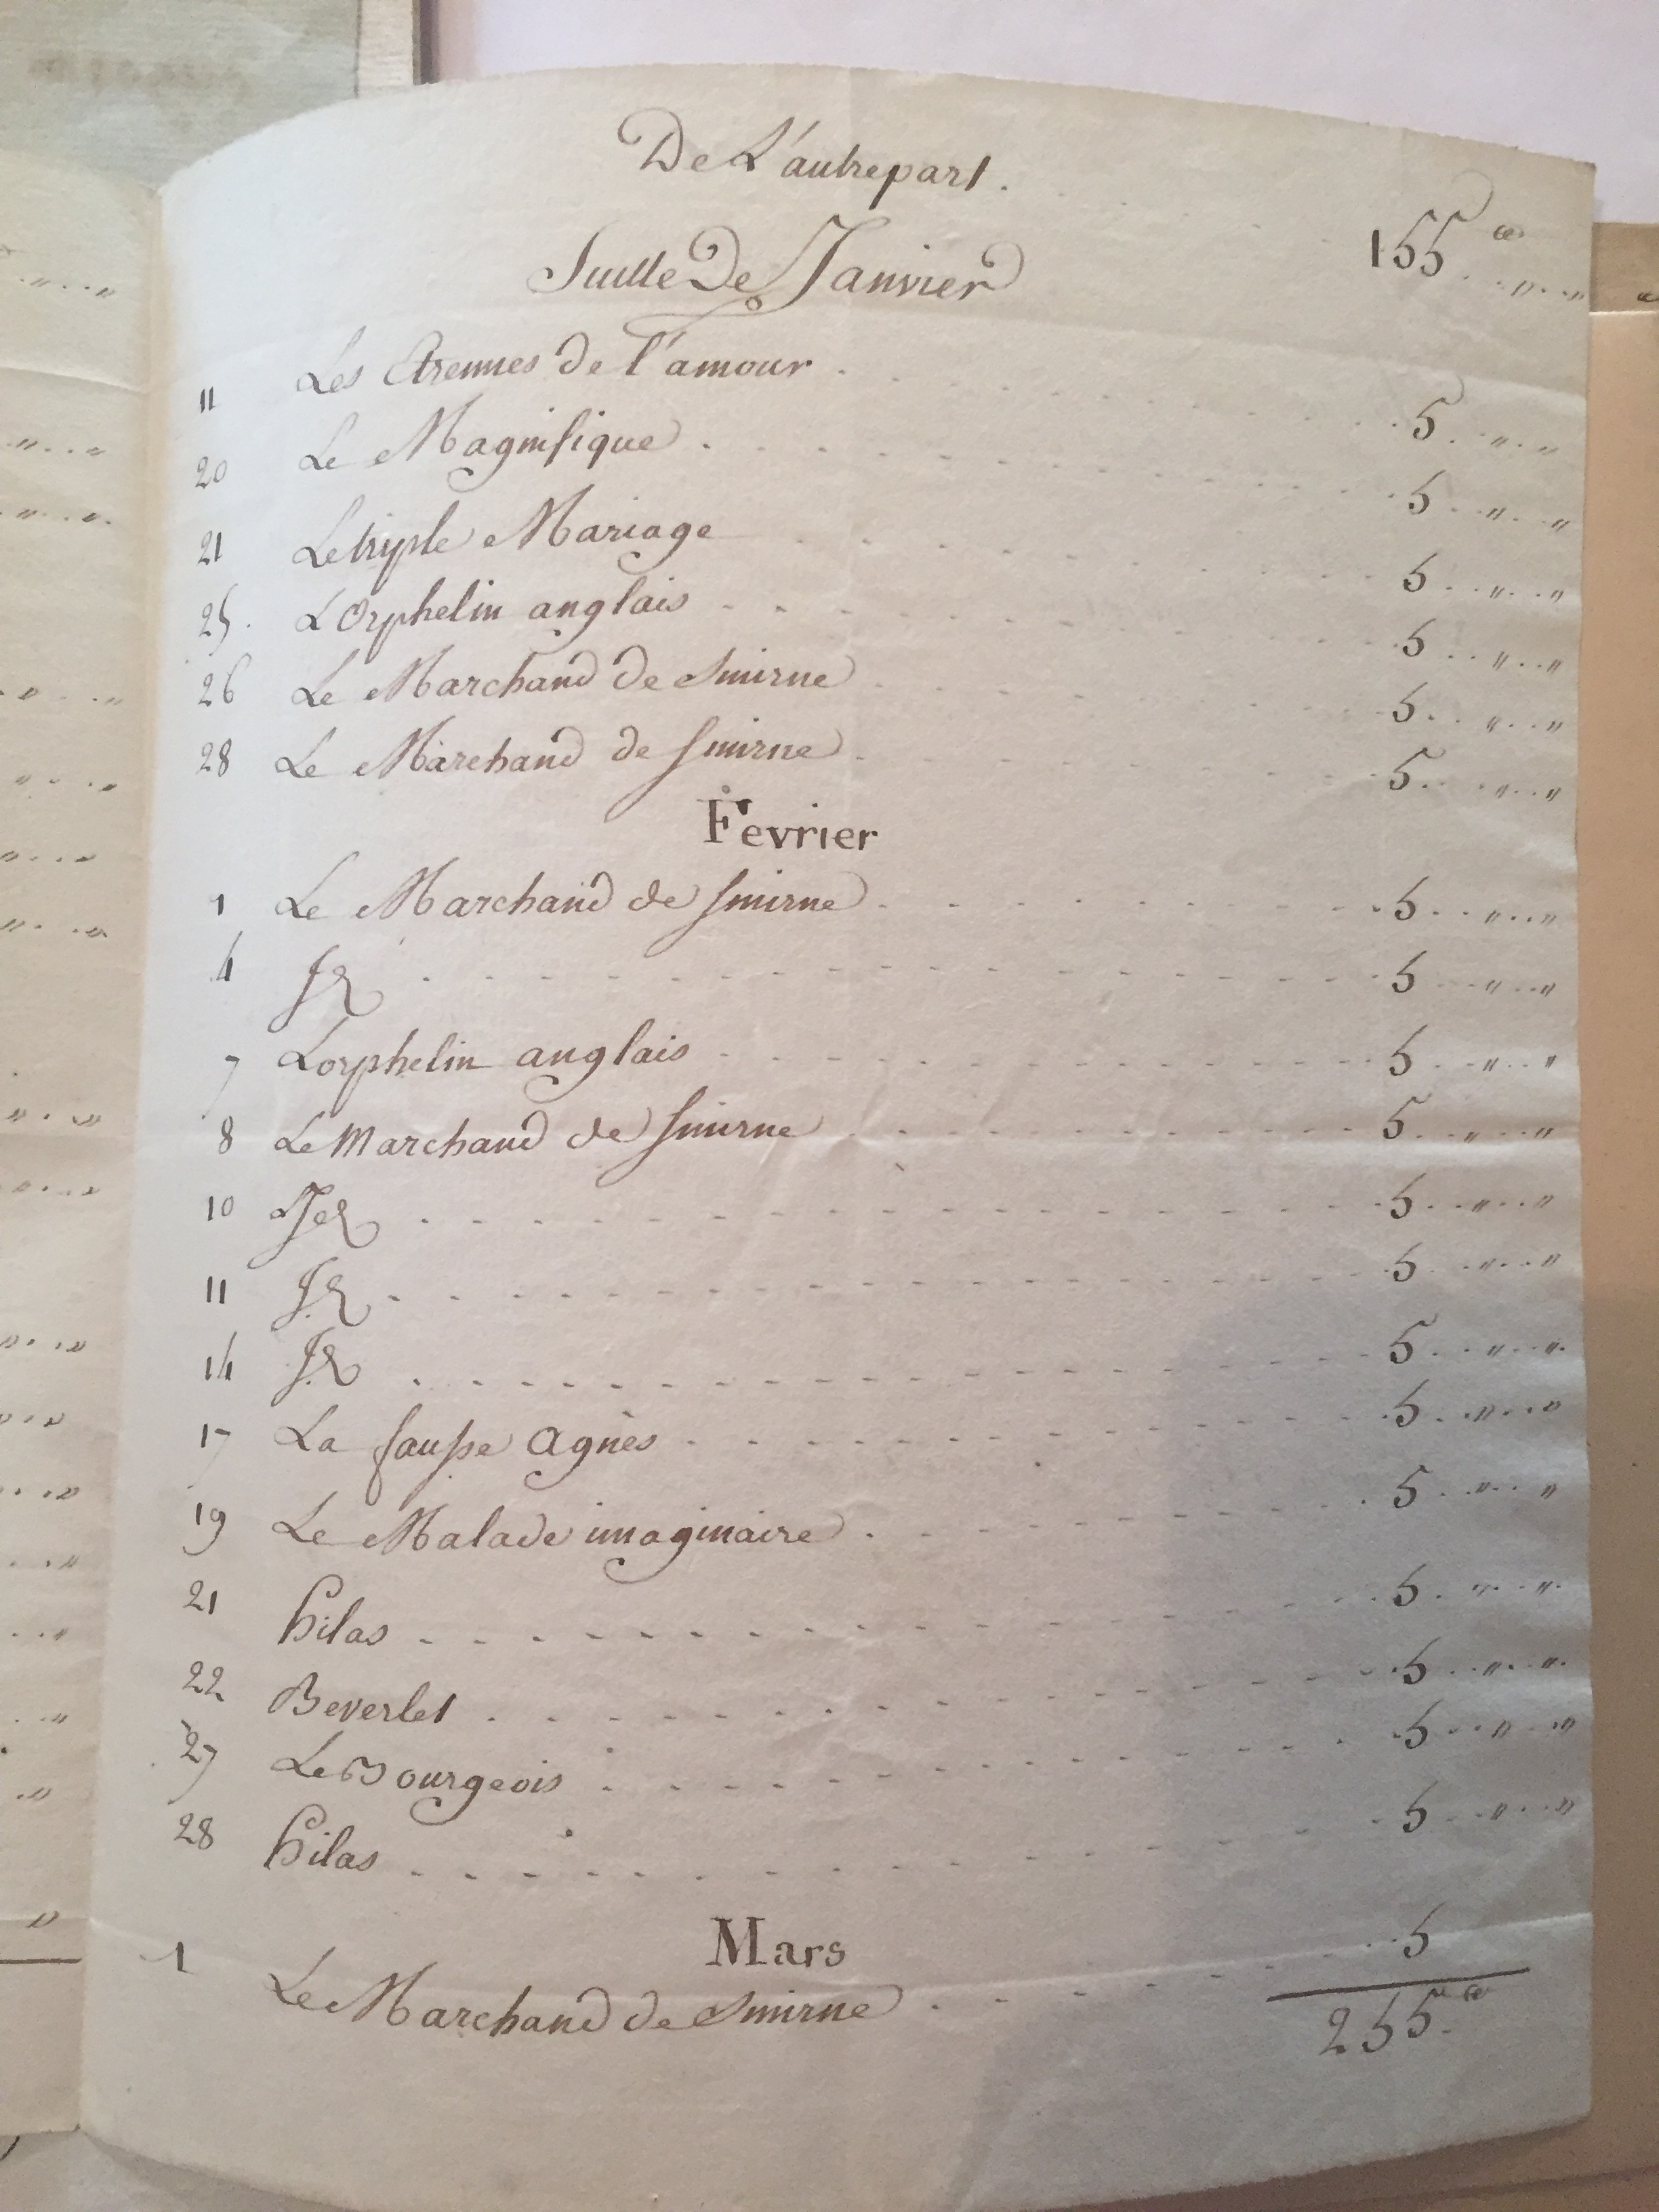 De L'autrepart.
155 ..".."
Suitte De Janvier
11 Les Etrennes de l'amour . . . 5 . " . "
20 Le Magnifique . . . 5 . " . "
21 Le triple Mariage . . . 5 . " . "
25. L'Orphelin anglais . . . 5 . " . "
26 Le Marchand de Smirne . . . 5 . " . "
28 Le Marchand de Smirne . . . 5 . " . "
Fevrier
1 Le Marchand de Smirne . . . 5 . " . "
4 . . . 5 . " . "
7 Lorphelin anglais . . . 5 . " . "
8 Le Marchand de Smirne . . . 5 . " . "
10 . . . 5 . " . "
11 . . . 5 . " . "
14 . . . 5 . " . "
17 La fausse Agnès . . . 5 . " . "
19 Le Malade imaginaire . . . 5 . " . "
21 hilas . . . 5 . " . "
22 Beverlei . . . 5 . " . "
27 Le Bourgeois . . . 5 . " . "
28 hilas . . . 5 . " . "
Mars
1 Le Marchand de Smirne . . . 5
255.